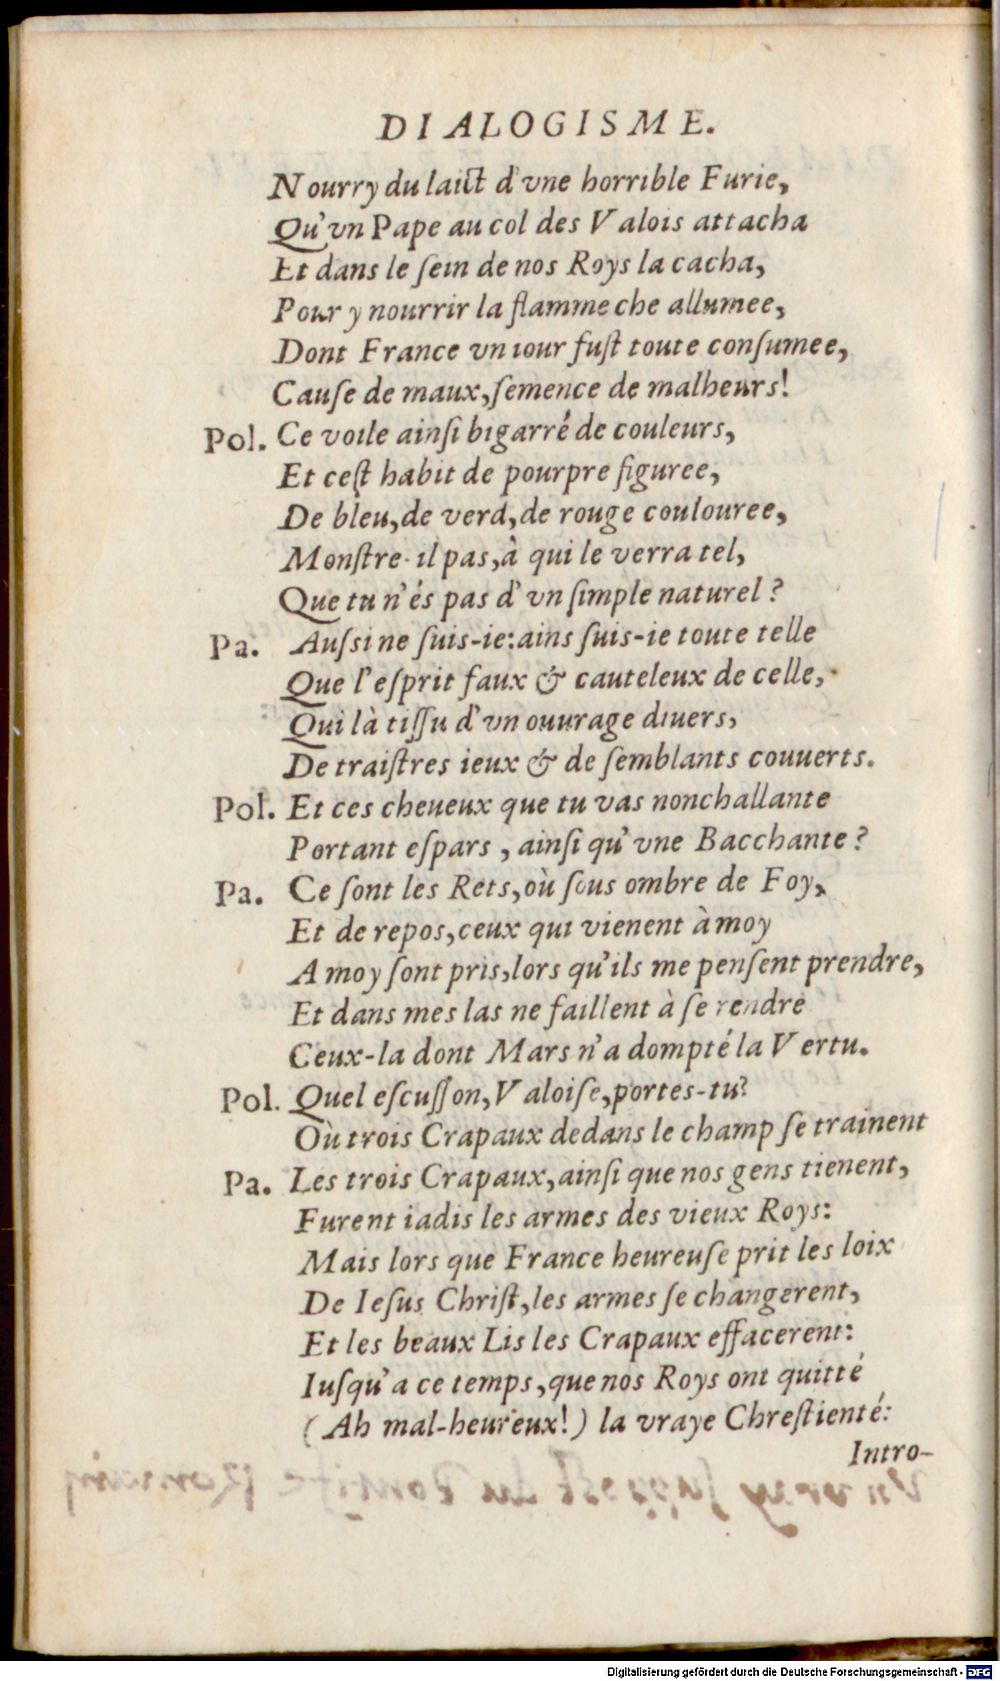 DIALOGISME.
Nourry du laict d'vne horrible Furie,
Qu'vn Pape au col des Valois attacha
Et dans le ſein de nos Roys la cacha,
Pour y nourrir la flamme che allumee,
Dont France vn iour fuſt toute conſumee,
Cauſe de maux, ſemence de malheurs!
Pol. Ce voile ainſi bigarré de couleurs,
Et ceſt habit de pourpre figuree,
De bleu, de verd, de rouge coulouree,
Monſtre-il pas, à qui le verra tel,
Que tu n'és pas d'vn ſimple naturel?
Pa. Auſsi ne ſuis-ie: ains ſuis-ie toute telle
Que l'eſprit faux & cauteleux de celle,
Qui là tiſſu d'vn ouurage diuers,
De traiſtres ieux & de ſemblants couuerts.
Pol. Et ces cheueux que tu vas nonchallante
Portant eſpars, ainſi qu'vne Bacchante?
Pa. Ce ſont les Rets, où ſous ombre de Foy,
Et de repos, ceux qui vienent à moy
A moy ſont pris, lors qu'ils me penſent prendre,
Et dans mes las ne faillent à ſe rendre
Ceux-la dont Mars n'a dompté la Vertu.
Pol. Quel eſcuſſon, Valoiſe, portes-tu?
Où trois Crapaux dedans le champ ſe trainent
Pa. Les trois Crapaux, ainſi que nos gens tienent,
Furent iadis les armes des vieux Roys:
Mais lors que France heureuſe prit les loix
De Ieſus Chriſt, les armes ſe changerent,
Et les beaux Lis les Crapaux effacerent:
Iuſqu'a ce temps, que nos Roys ont quitté
(Ah mal-heureux!) la vraye Chreſtienté:
Intro-
Digitalisierung gefördert durch die Deutsche Forschungsgemeinschaft - DFG